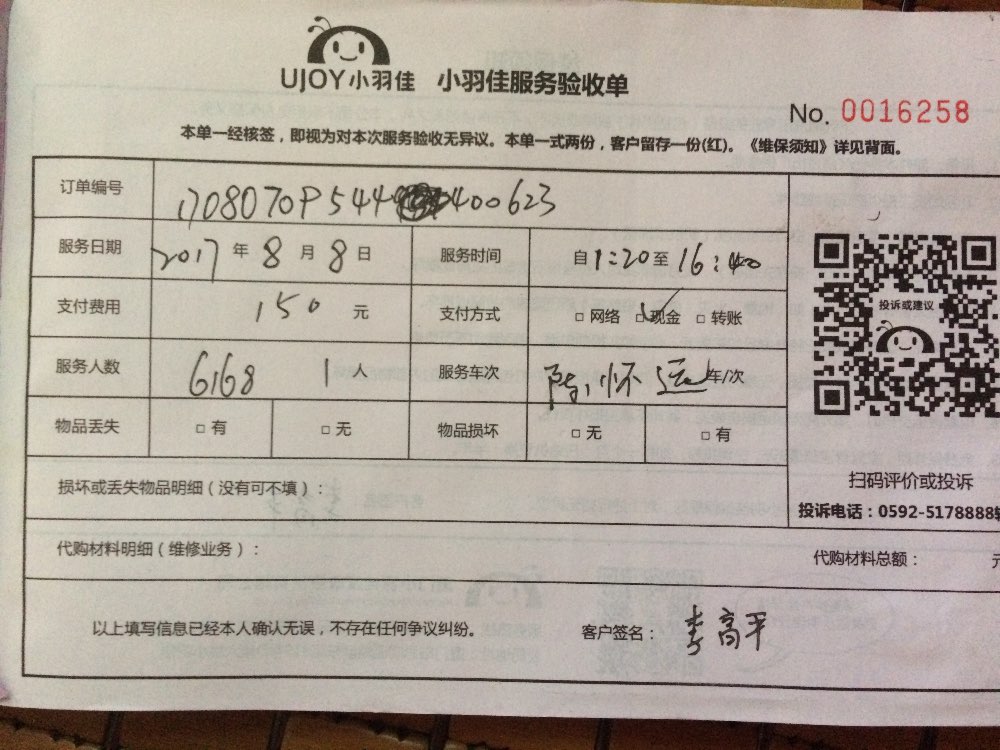 UJOY小羽佳 小羽佳服务验收单
No. 0016258
本单一经核签，即视为对本次服务验收无异议。本单一式两份，客户留存一份(红)。《维保须知》详见背面。
订单编号 170807OP544 400623
服务日期 2017 年 8 月 8 日 服务时间 自 1:20 至 16:40
支付费用 150 元 支付方式 □ 网络 □ 现金 □ 转账
投诉或建议
服务人数 6168 1 人 服务车次 陈 怀 运 车/次
物品丢失 □ 有 □ 无 物品损坏 □ 无 □ 有
扫码评价或投诉
损坏或丢失物品明细（没有可不填）：
投诉电话：0592-5178888
代购材料明细（维修业务）：
代购材料总额：
以上填写信息已经本人确认无误，不存在任何争议纠纷。 客户签名： 李高平